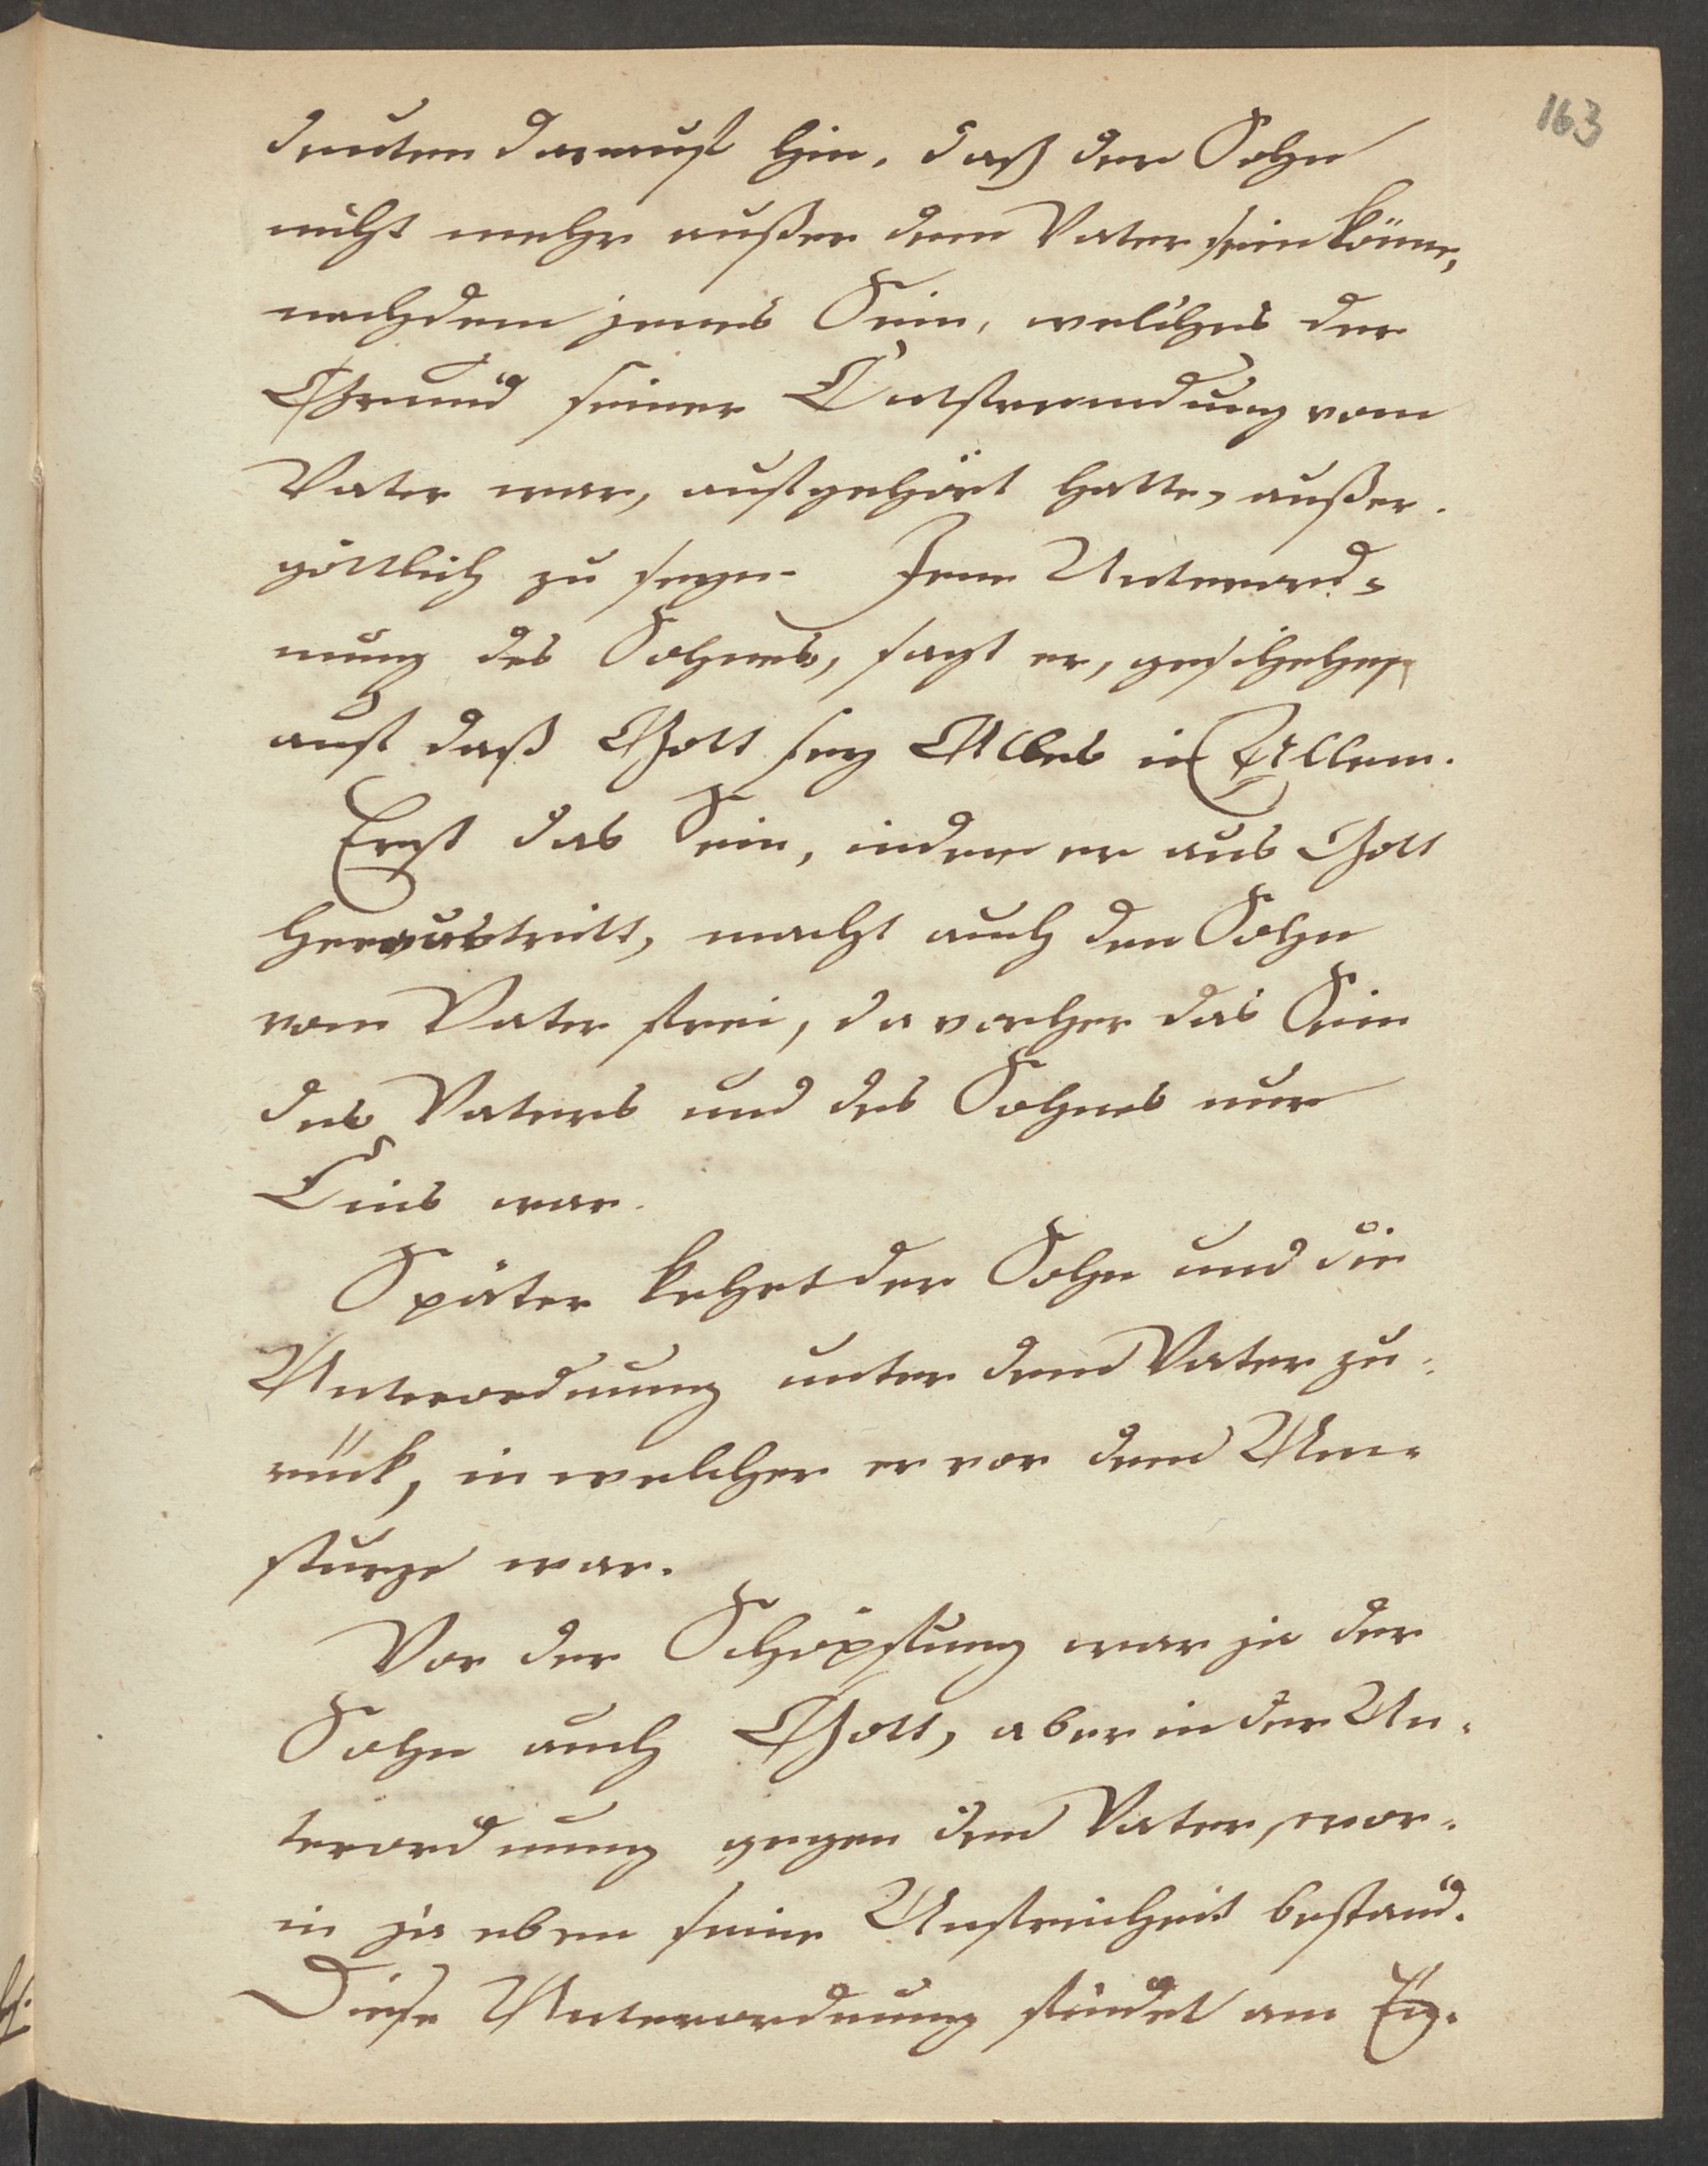 163
deuten darauf hin, daß der Sohn
nicht mehr außer dem Vater sein könne,
nachdem jenes Sein, welches der
Grund seiner Entfremdung vom
Vater war, aufgehört hatte, außer-
göttlich zu seyn. Jene Unterord-
nung des Sohnes, sagt er, geschehe,
auf daß Gott sey Alles in Allem.
Erst das Sein, indem er aus Gott
heraustritt, macht auch den Sohn
vom Vater frei, da vorher das Sein
des Vaters und des Sohnes nur
Eins war.
Später kehrt der Sohn und die
Unterordnung unter dem Vater zu-
rück, in welcher er vor dem Um-
sturze war.
Vor der Schöpfung war ja der
Sohn auch Gott, aber in der Un-
terordnung gegen den Vater, wor-
in ja eben seine Unfreiheit bestand.
Diese Unterordnung findet am